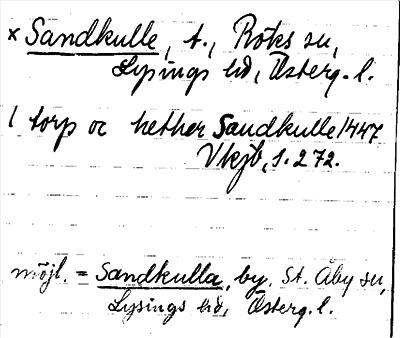 × Sandkulle, t., Röks sn,
Lysings hd, Österg. l.
1 torp oc hether Sandkulle 1447
Vkjb, s. 272.
möjl. = Sandkulla, by, St. Åby sn,
Lysings hd, Österg. l.